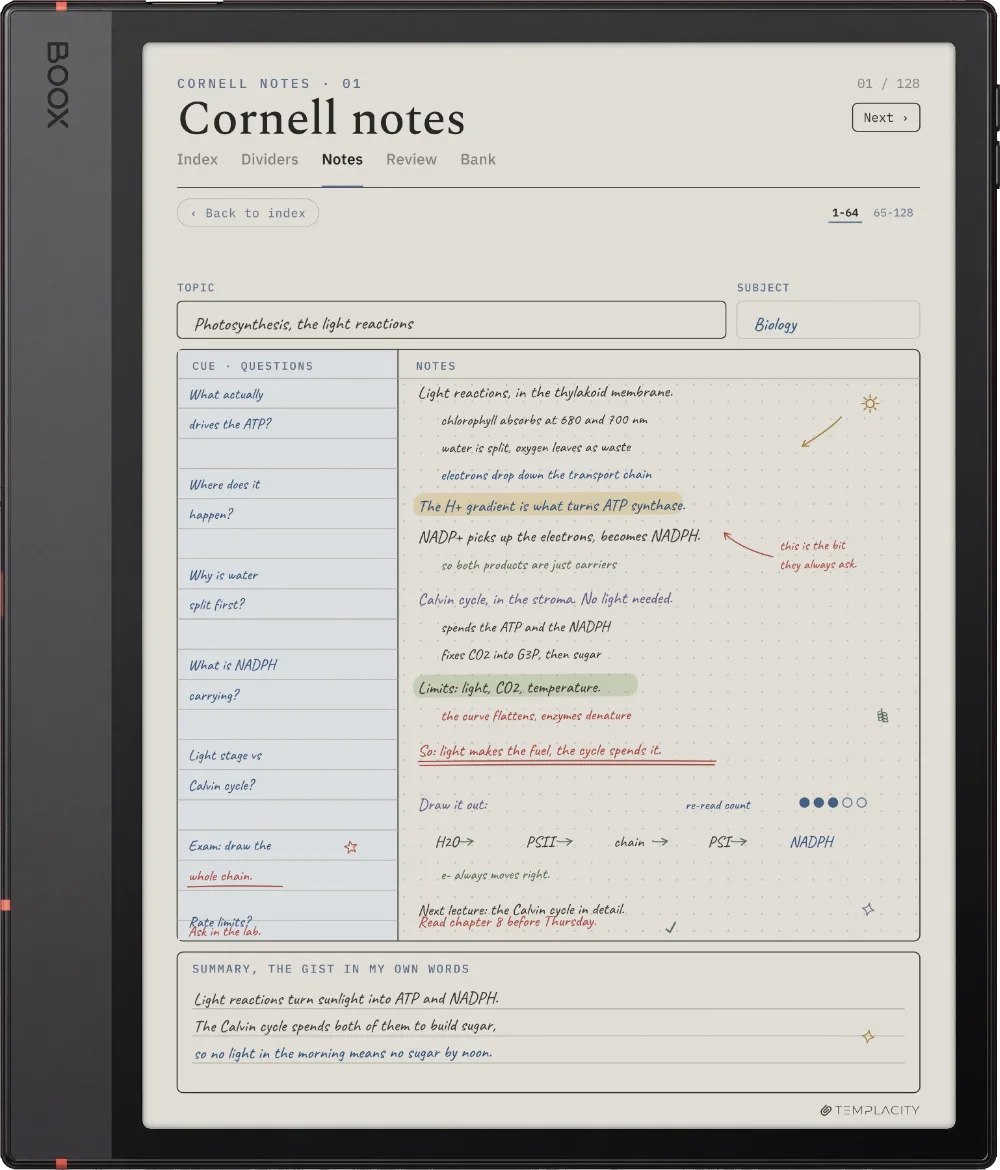 BOOX
CORNELL NOTES · 01
01 / 128
Cornell notes
Next ›
Index Dividers Notes Review Bank
‹ Back to index
1-64 65-128
TOPIC
Photosynthesis, the light reactions
SUBJECT
Biology
CUE · QUESTIONS
What actually
drives the ATP?
Where does it
happen?
Why is water
split first?
What is NADPH
carrying?
Light stage vs
Calvin cycle?
Exam: draw the
whole chain.
Rate limits?
Ask in the lab.
NOTES
Light reactions, in the thylakoid membrane.
chlorophyll absorbs at 680 and 700 nm
water is split, oxygen leaves as waste
electrons drop down the transport chain
The H+ gradient is what turns ATP synthase.
NADP+ picks up the electrons, becomes NADPH.
this is the bit
they always ask.
so both products are just carriers
Calvin cycle, in the stroma. No light needed.
spends the ATP and the NADPH
fixes CO2 into G3P, then sugar
Limits: light, CO2, temperature.
the curve flattens, enzymes denature
So: light makes the fuel, the cycle spends it.
Draw it out: re-read count
H2O→ PSII→ chain → PSI→ NADPH
e- always moves right.
Next lecture: the Calvin cycle in detail.
Read chapter 8 before Thursday.
SUMMARY, THE GIST IN MY OWN WORDS
Light reactions turn sunlight into ATP and NADPH.
The Calvin cycle spends both of them to build sugar,
so no light in the morning means no sugar by noon.
TEMPLACITY